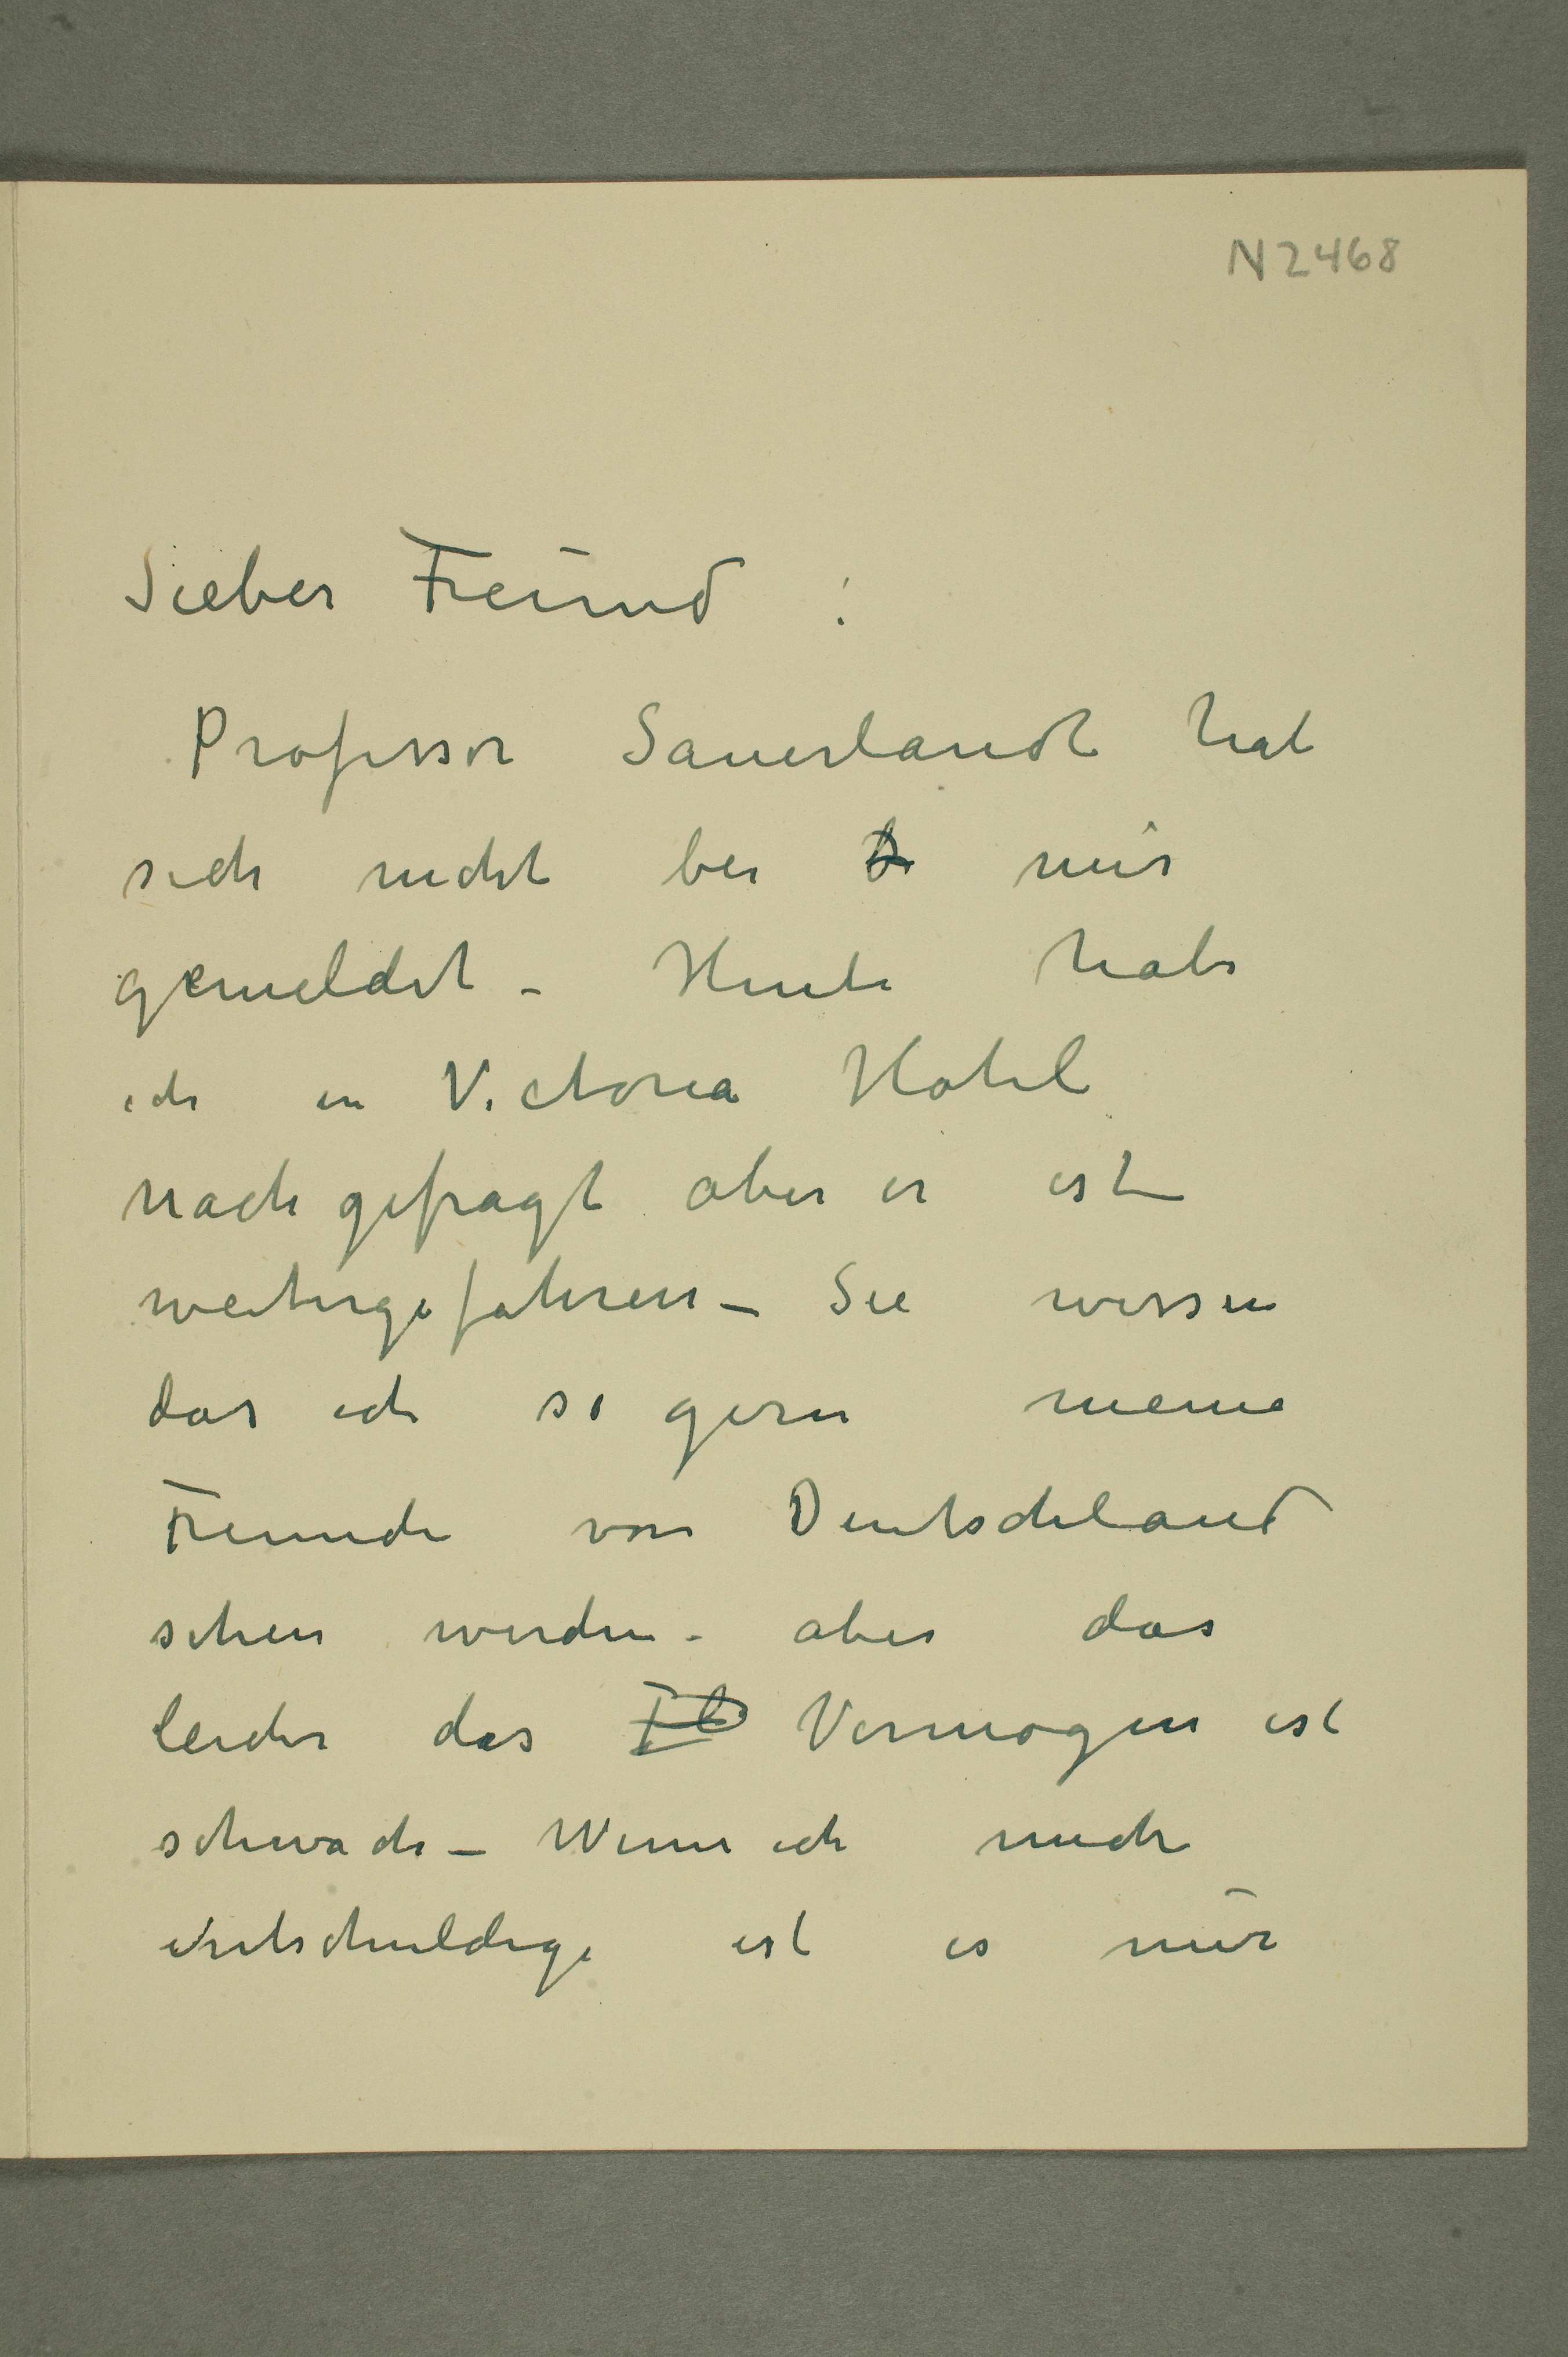 N 2468
Lieber Freund :
Professor Sauerlandt hat
sich nicht bei mir
gemeldet – Heute habe
ich in Victoria Hotel
nachgefragt aber er ist
weitergefahren – Sie wissen
das ich so gern meine
Freunde von Deutschland
sehen werden – aber das
leider das Vermogen ist
schwach – Wenn ich mich
entschuldige ist es nur